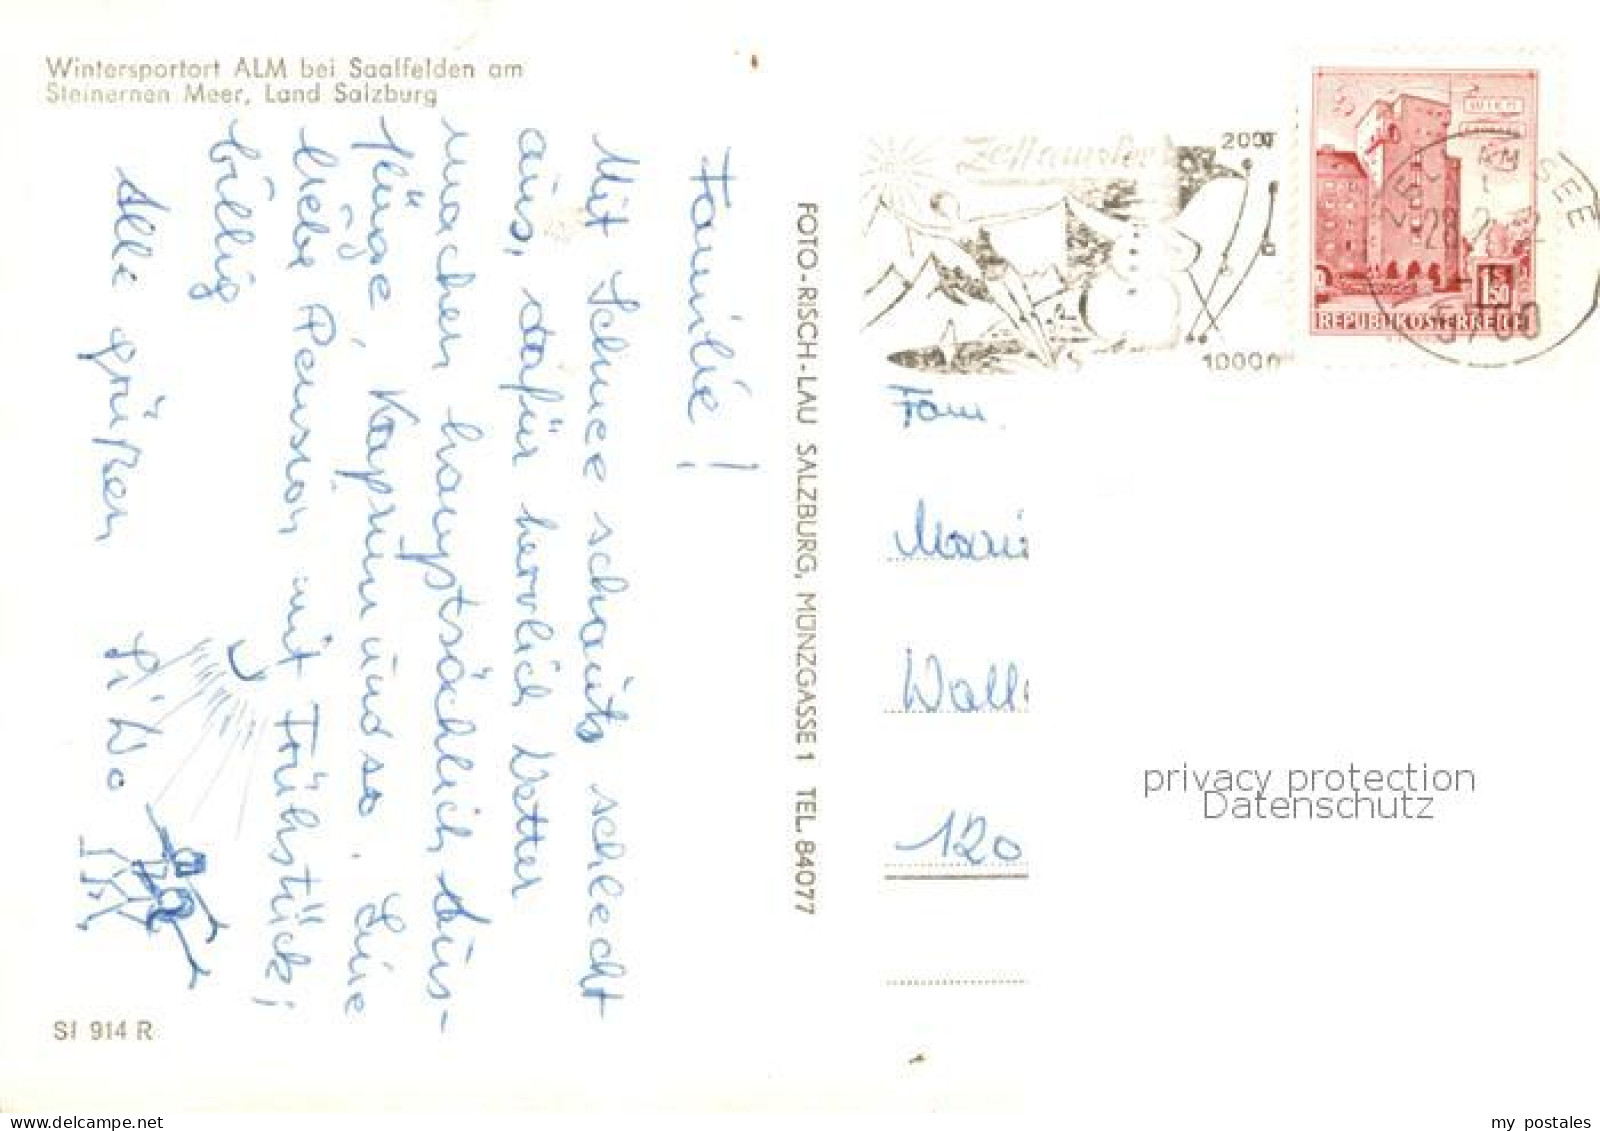 Wintersportort ALM bei Saalfelden am
Steinernen Meer, Land Salzburg
Familie!
Mit Schnee schauts schlecht
aus, dafür herrlich Wetter
machen hauptsächlich Aus-
flüge, Kaprun und so. Eine
liebe Pension mit Frühstück!
billig
Alle grüßen
SI 914 R
FOTO-RISCH-LAU SALZBURG, MÜNZGASSE 1 TEL. 84077
Zell am See
2000
1000
WIEN
1.50
REPUBLIK ÖSTERREICH
ZELL AM SEE
5700
Fam.
Mari
Wall
120
privacy protection
Datenschutz
my postales